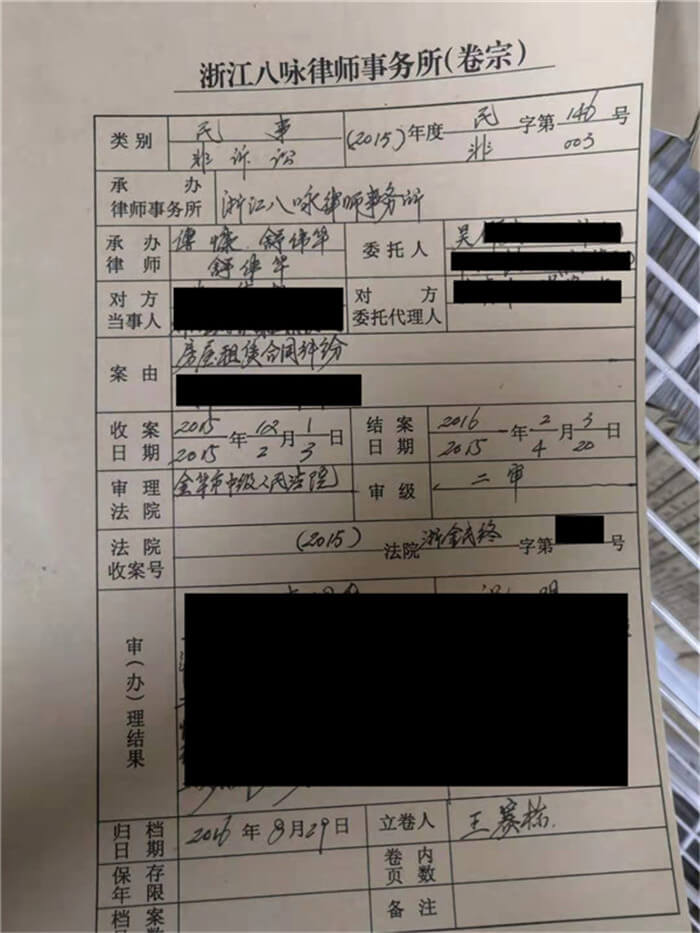 浙江八咏律师事务所(卷宗)
类别 民事 (2015)年度 民 字第 146 号
非诉讼 非 003
承办律师事务所 浙江八咏律师事务所
承办律师 舒伟华 委托人 吴
舒伟华
对方当事人 对方委托代理人
案由 房屋租赁合同纠纷
收案日期 2015年12月1日 结案日期 2016年2月3日
2015 2 3 2015 4 20
审理法院 金华市中级人民法院 审级 二审
法院收案号 (2015) 法院 浙金民终 字第 号
审(办)理结果
归档日期 2016年8月29日 立卷人 王赛栋
保存年限 卷内页数
档案卷数 备注